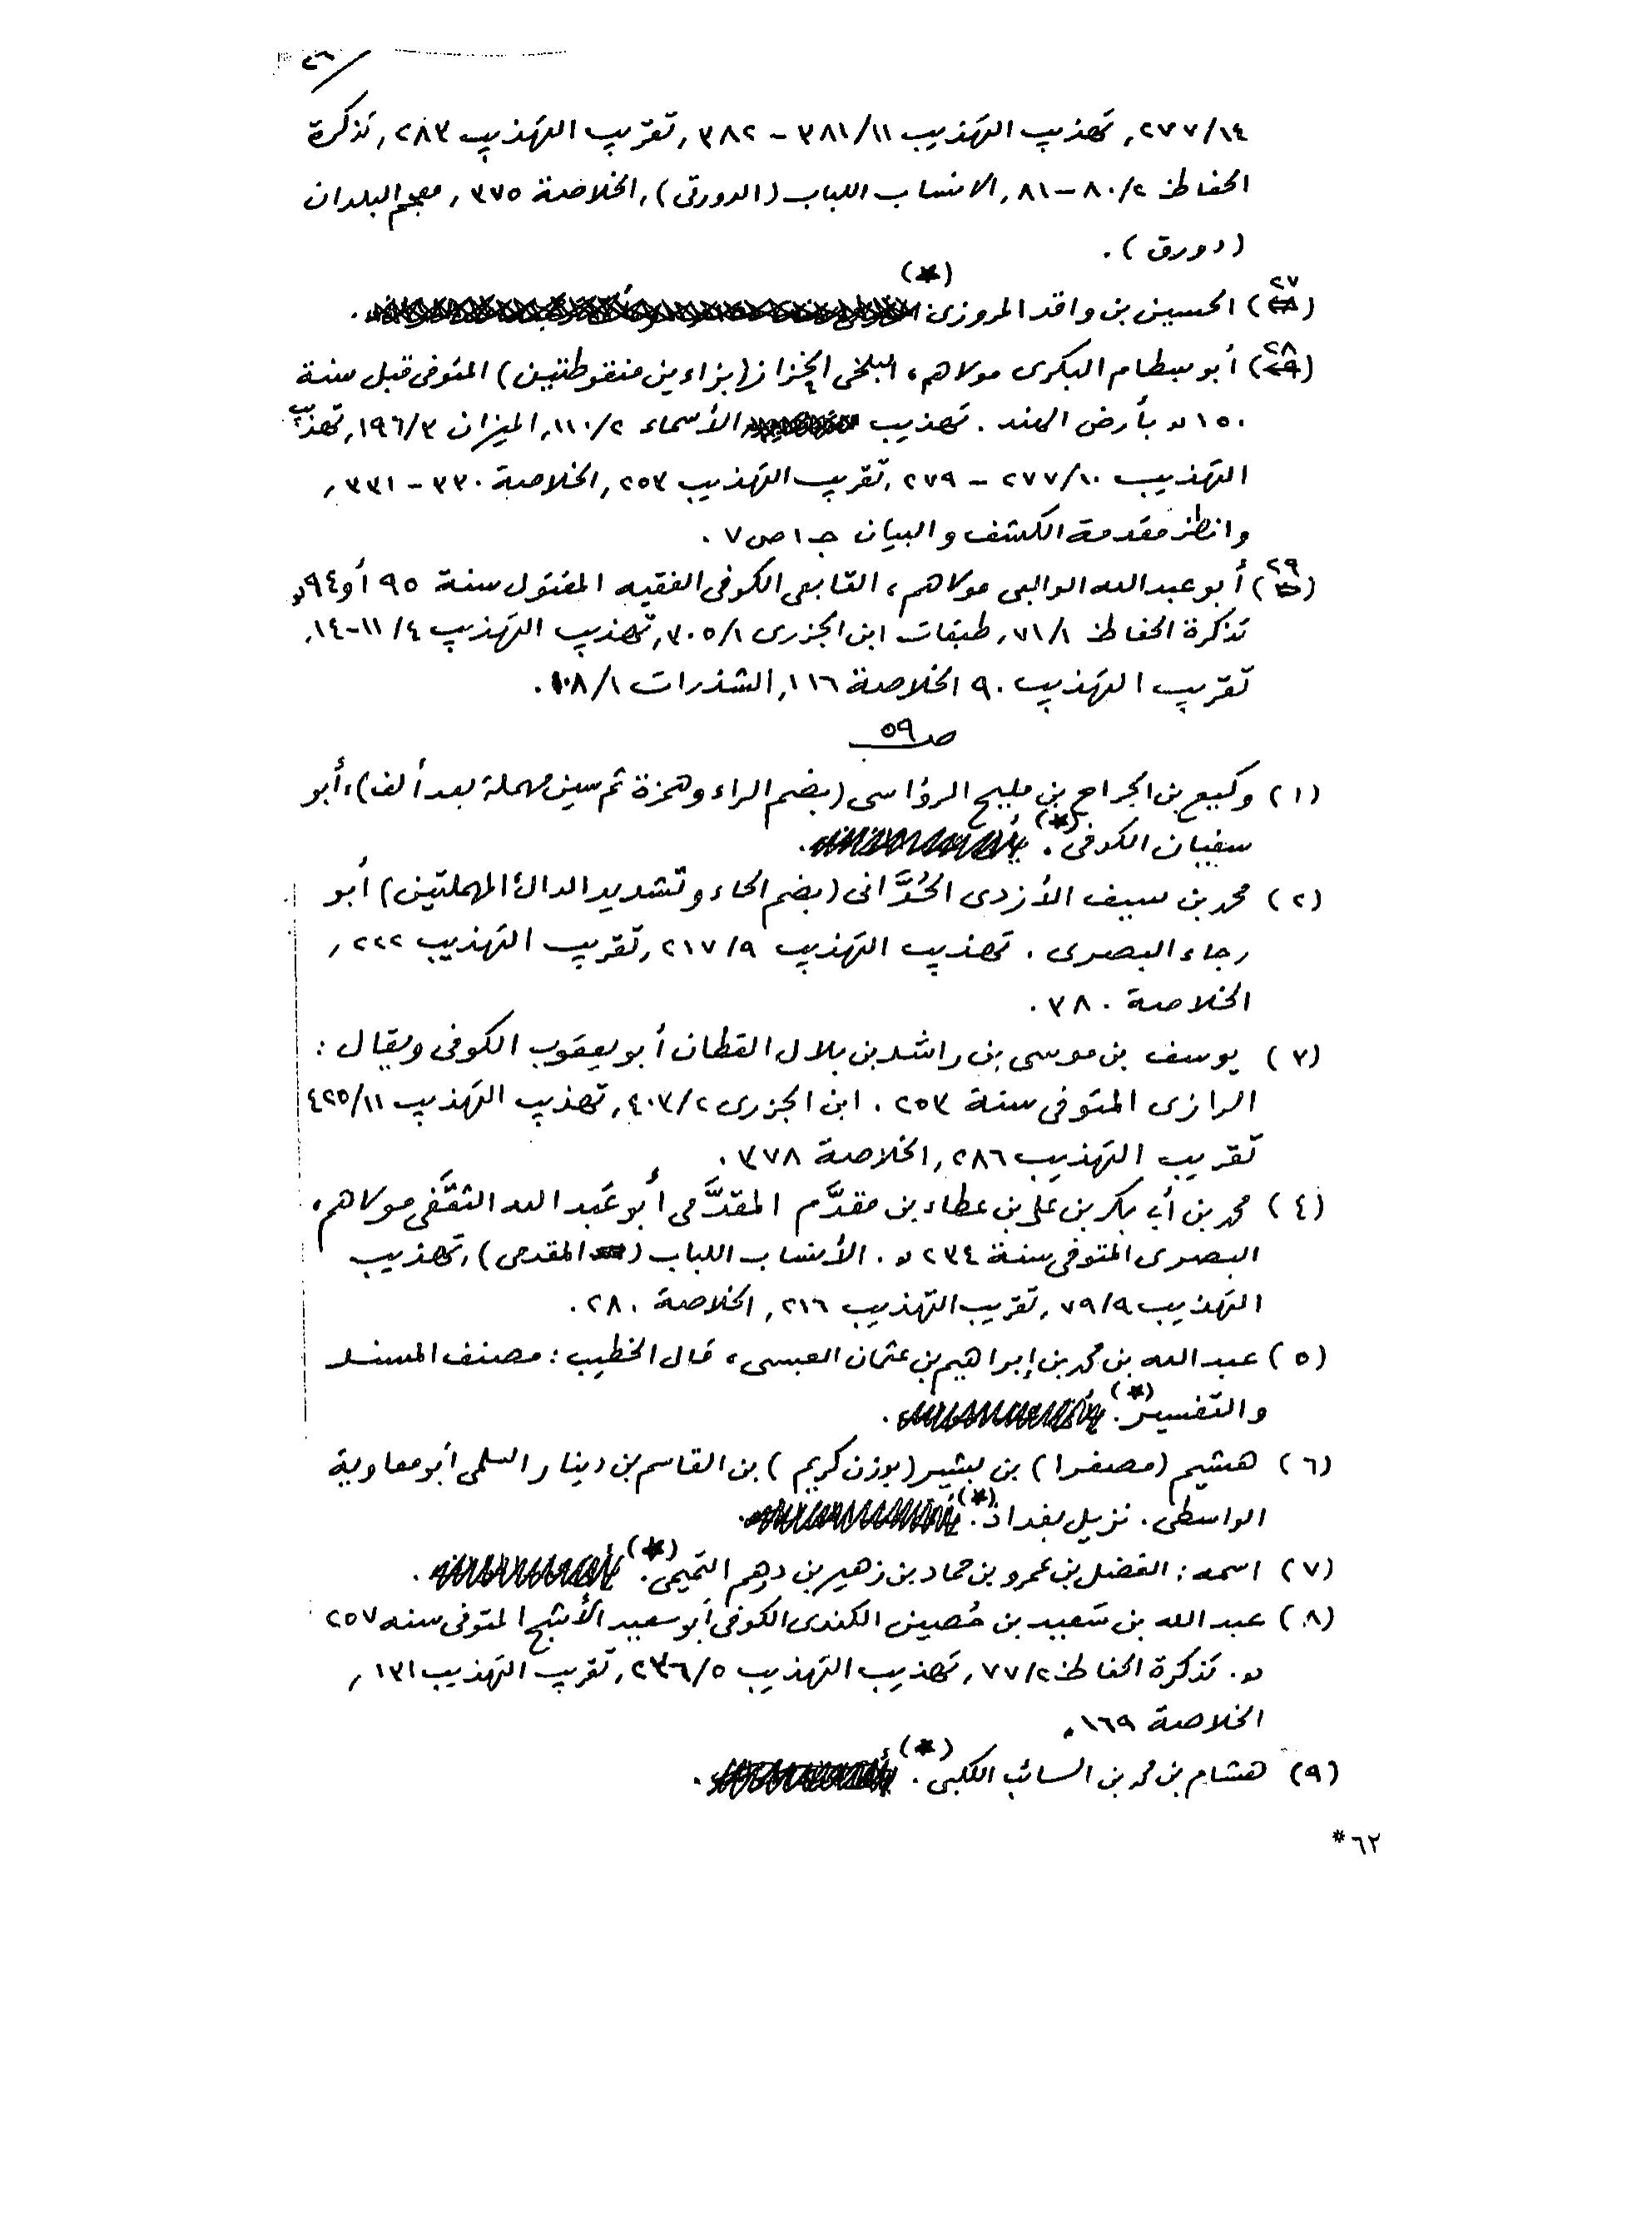 ٢٦/
٢٧٧/١٤، تهذيب التهذيب ٣٨١/١١ - ٣٨٢، تقريب التهذيب ٢٨٣، تذكرة
الحفاظ ٨٠/٢ - ٨١، الانساب اللباب (الدورقى)، الخلاصة ٣٧٥، معجم البلدان
(دورق).
(٢٧) الحسين بن واقد المروزى (*) .
(٢٨) أبو بسطام البكرى مولاهم، البلخى الخزاز (بزاءين منقوطتين) المتوفى قبل سنة
١٥٠ ﻫ بأرض الهند. تهذيب الأسماء ١١٠/٢، الميزان ١٩٦/٣، تهذيب
التهذيب ٢٧٧/١٠ - ٢٧٩، تقريب التهذيب ٢٥٣، الخلاصة ٣٣٠ - ٣٣١،
وانظر مقدمة الكشف والبيان جـ ١ ص ٧.
(٢٩) أبو عبد الله الوالبى مولاهم، التابعى الكوفى الفقيه المقتول سنة ٩٥ أو ٩٤ ﻫ
تذكرة الحفاظ ٧١/١، طبقات ابن الجزرى ٣٠٥/١، تهذيب التهذيب ١١/٤-١٤،
تقريب التهذيب ٩٠ الخلاصة ١١٦، الشذرات ١٠٨/١.
ص ٥٩
(١) وكيع بن الجراح بن مليح الرؤاسى (بضم الراء وهمزة ثم سين مهملة بعد ألف)، أبو
سفيان الكوفى. (*) .
(٢) محمد بن سيف الأزدى الحُدَّانى (بضم الحاء وتشديد الدال المهملتين) أبو
رجاء البصرى. تهذيب التهذيب ٢١٧/٩، تقريب التهذيب ٢٢٢،
الخلاصة ٣٨٠.
(٣) يوسف بن موسى بن راشد بن بلال القطان أبو يعقوب الكوفى ويقال:
الرازى المتوفى سنة ٢٥٣. ابن الجزرى ٤٠٣/٢، تهذيب التهذيب ٤٢٥/١١
تقريب التهذيب ٢٨٦، الخلاصة ٣٧٨.
(٤) محمد بن أبى بكر بن على بن عطاء بن مقدَّم المقدَّمى أبو عَبد الله الثقَفى مولاهم،
البصرى المتوفى سنة ٢٣٤ ﻫ. الأنساب اللباب (المقدمى)، تهذيب
التهذيب ٧٩/٩، تقريب التهذيب ٢١٦، الخلاصة ٢٨٠.
(٥) عبد الله بن محمد بن إبراهيم بن عثمان العبسى، قال الخطيب: مصنف المسند
والتفسير. (*) .
(٦) هشيم (مصغرا) بن بشير (بوزن كريم) بن القاسم بن دينار السلمى أبو معاوية
الواسطى. نزيل بغداد. (*) .
(٧) اسمه: الفضل بن عمرو بن حماد بن زهير بن درهم التميمى. (*) .
(٨) عبد الله بن سَعيد بن حُصين الكندى الكوفى أبو سعيد الأشج المتوفى سنه ٢٥٧
ﻫ. تذكرة الحفاظ ٧٧/٢، تهذيب التهذيب ٢٣٦/٥، تقريب التهذيب ١٣١،
الخلاصة ١٦٩.
(٩) هشام بن محمد بن السائب الكلبى. (*) .
٦٢ *